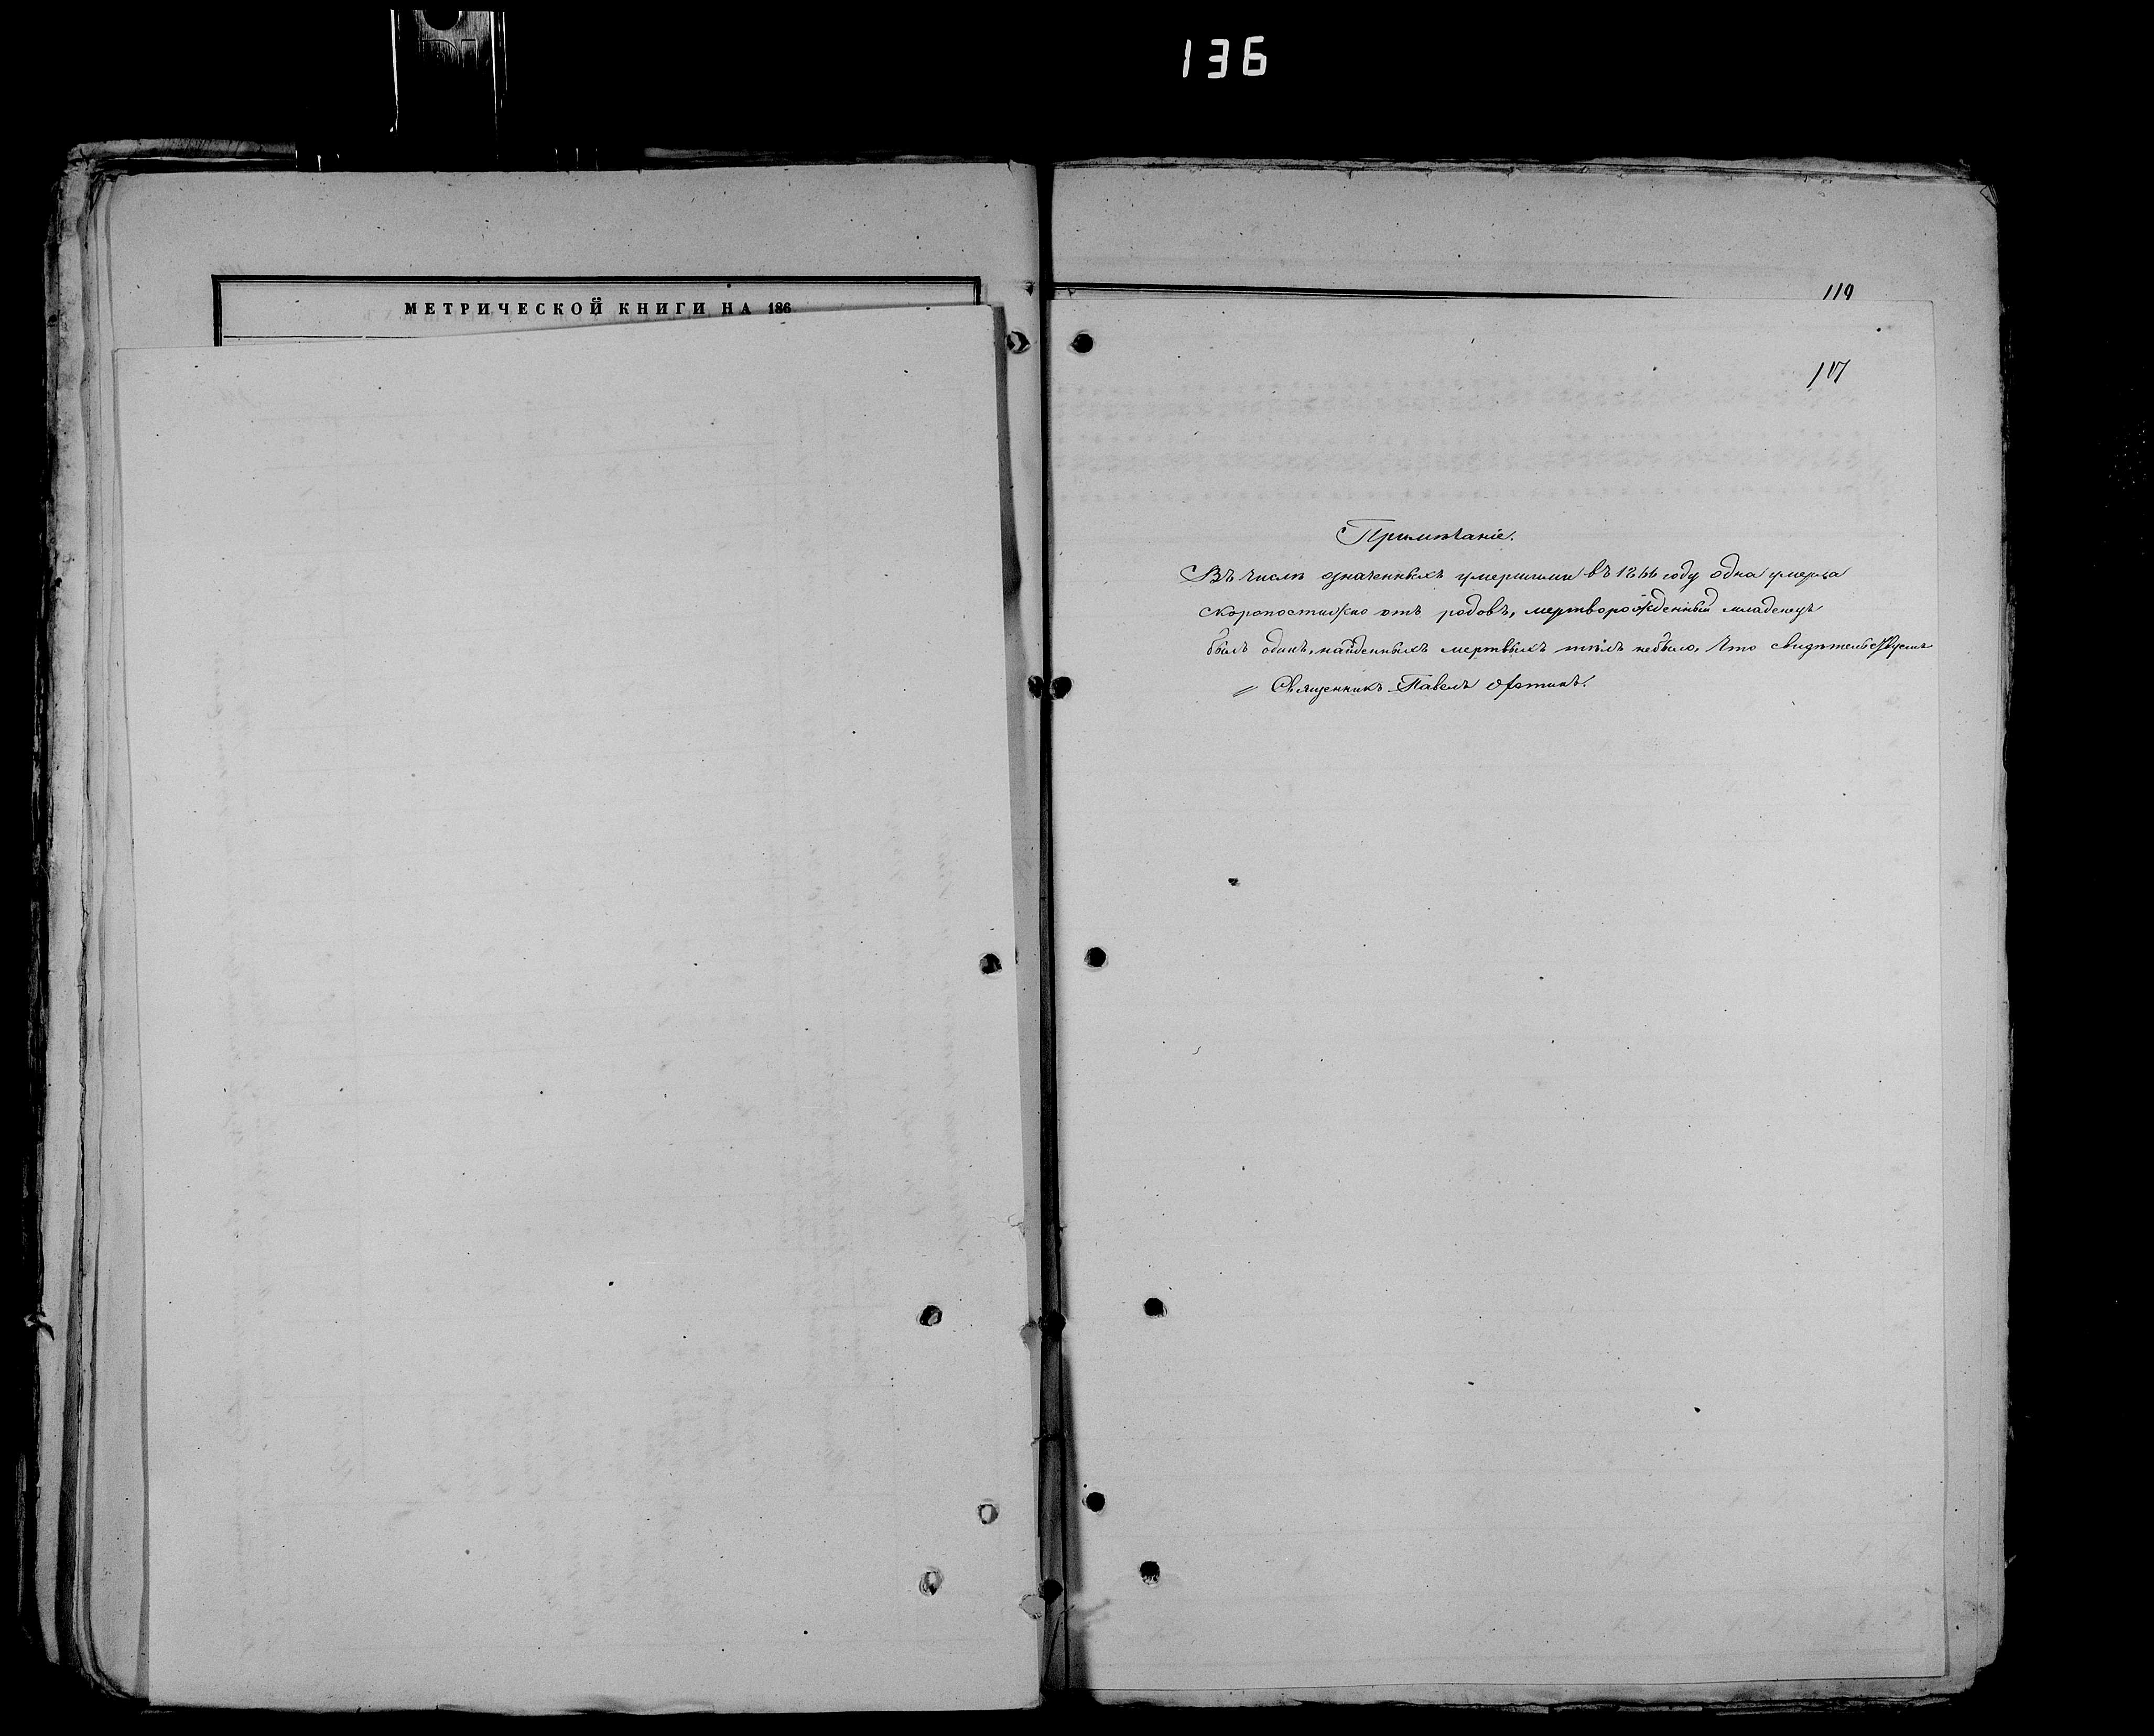 136
МЕТРИЧЕСКОЙ КНИГИ НА 186
119
117
Примѣчаніе.
Въ числѣ означенныхъ умершими въ 1866 году одна умерла
скоропостижно отъ родовъ, мертворожденный младенецъ
былъ одинъ, найденныхъ мертвыхъ тѣлъ небыло, что свидѣтельствуетъ
Священникъ Павелъ